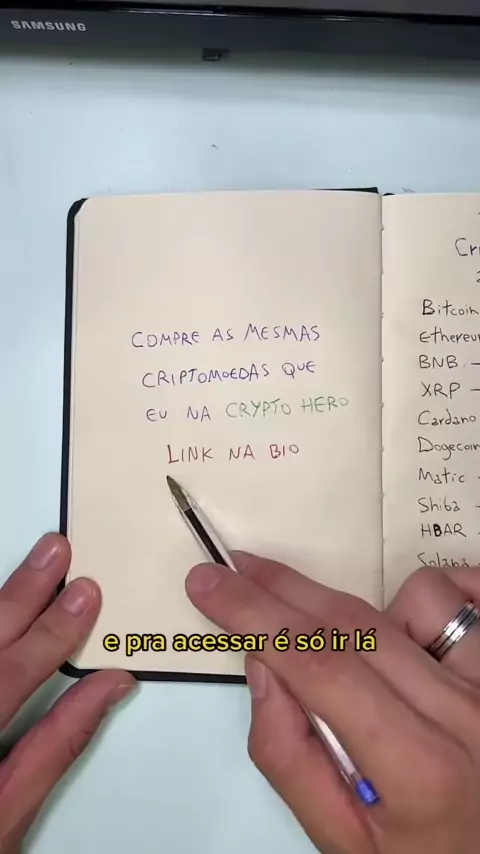 SAMSUNG
COMPRE AS MESMAS
CRIPTOMOEDAS QUE
EU NA CRYPTO HERO
LINK NA BIO
Bitcoin
BNB -
XRP -
Cardano
Matic -
Shiba -
HBAR -
Solana
e pra acessar é só ir lá